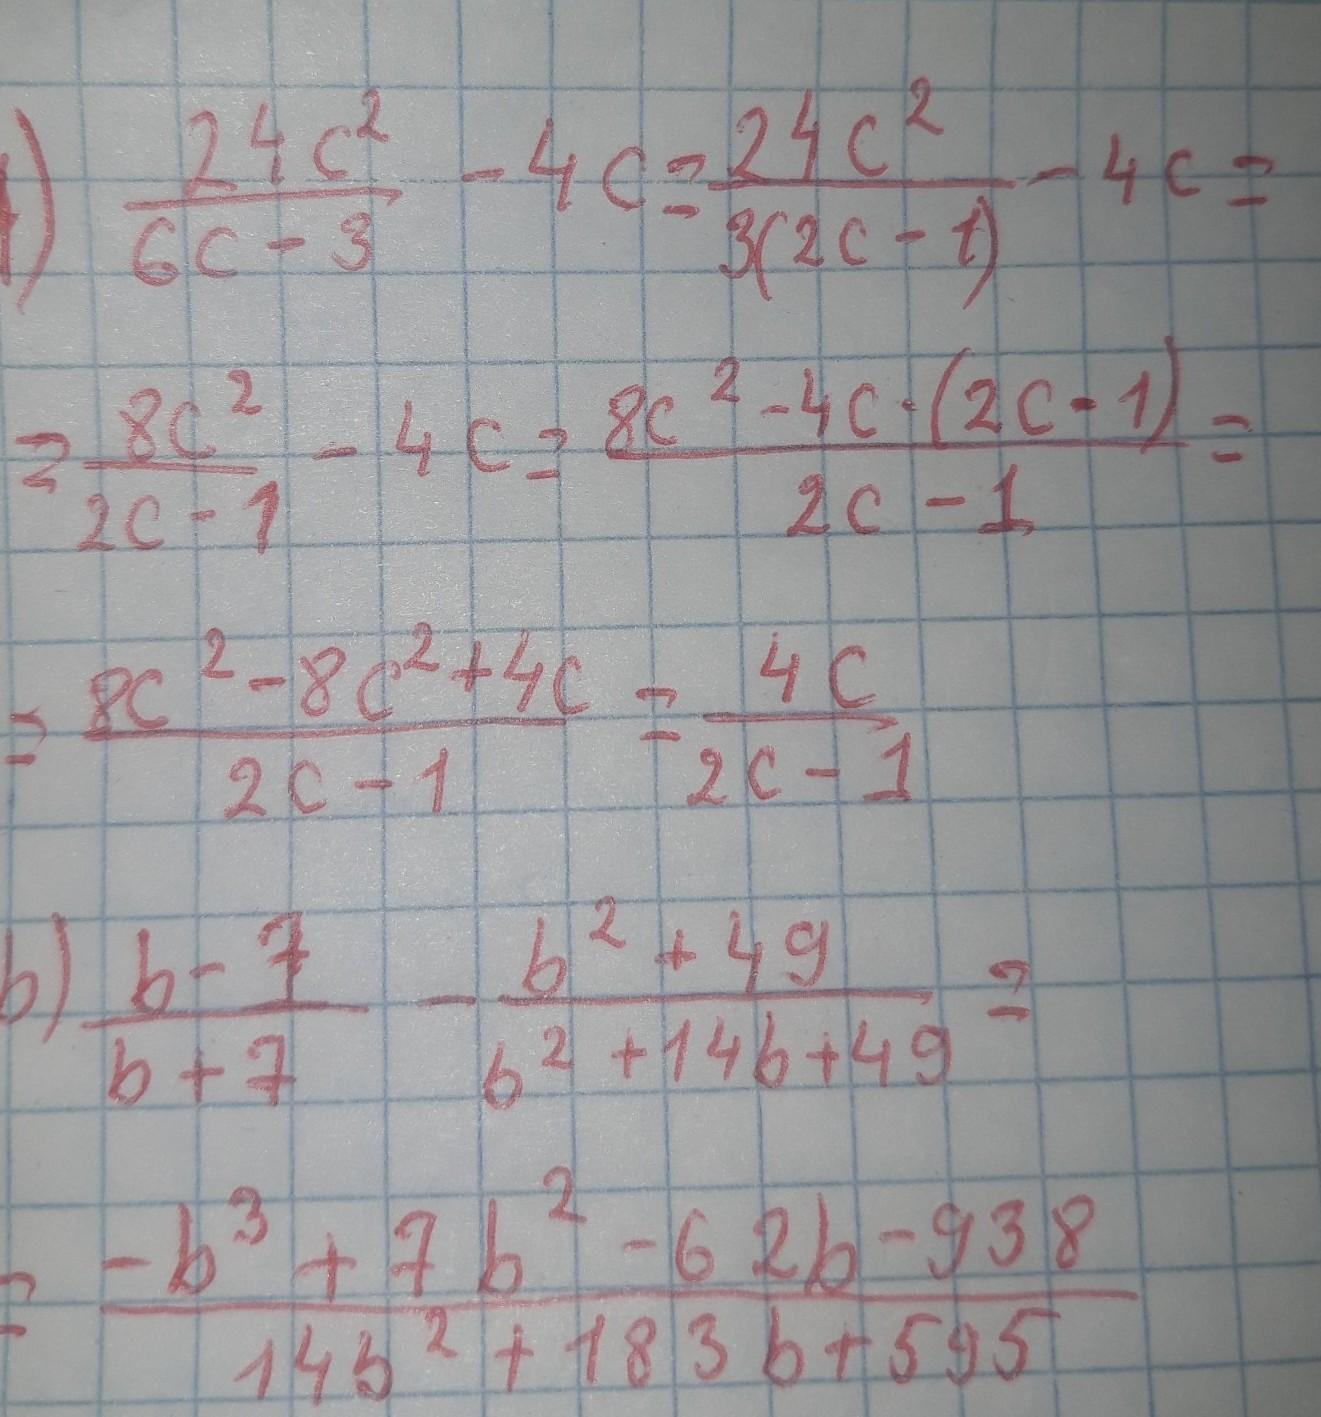 1) 24c²/(6c - 3) - 4c = 24c²/(3(2c - 1)) - 4c =
= 8c²/(2c - 1) - 4c = (8c² - 4c · (2c - 1))/(2c - 1) =
= (8c² - 8c² + 4c)/(2c - 1) = 4c/(2c - 1)
b) (b - 7)/(b + 7) - (b² + 49)/(b² + 14b + 49) =
= (-b³ + 7b² - 62b - 938)/(14b² + 183b + 595)